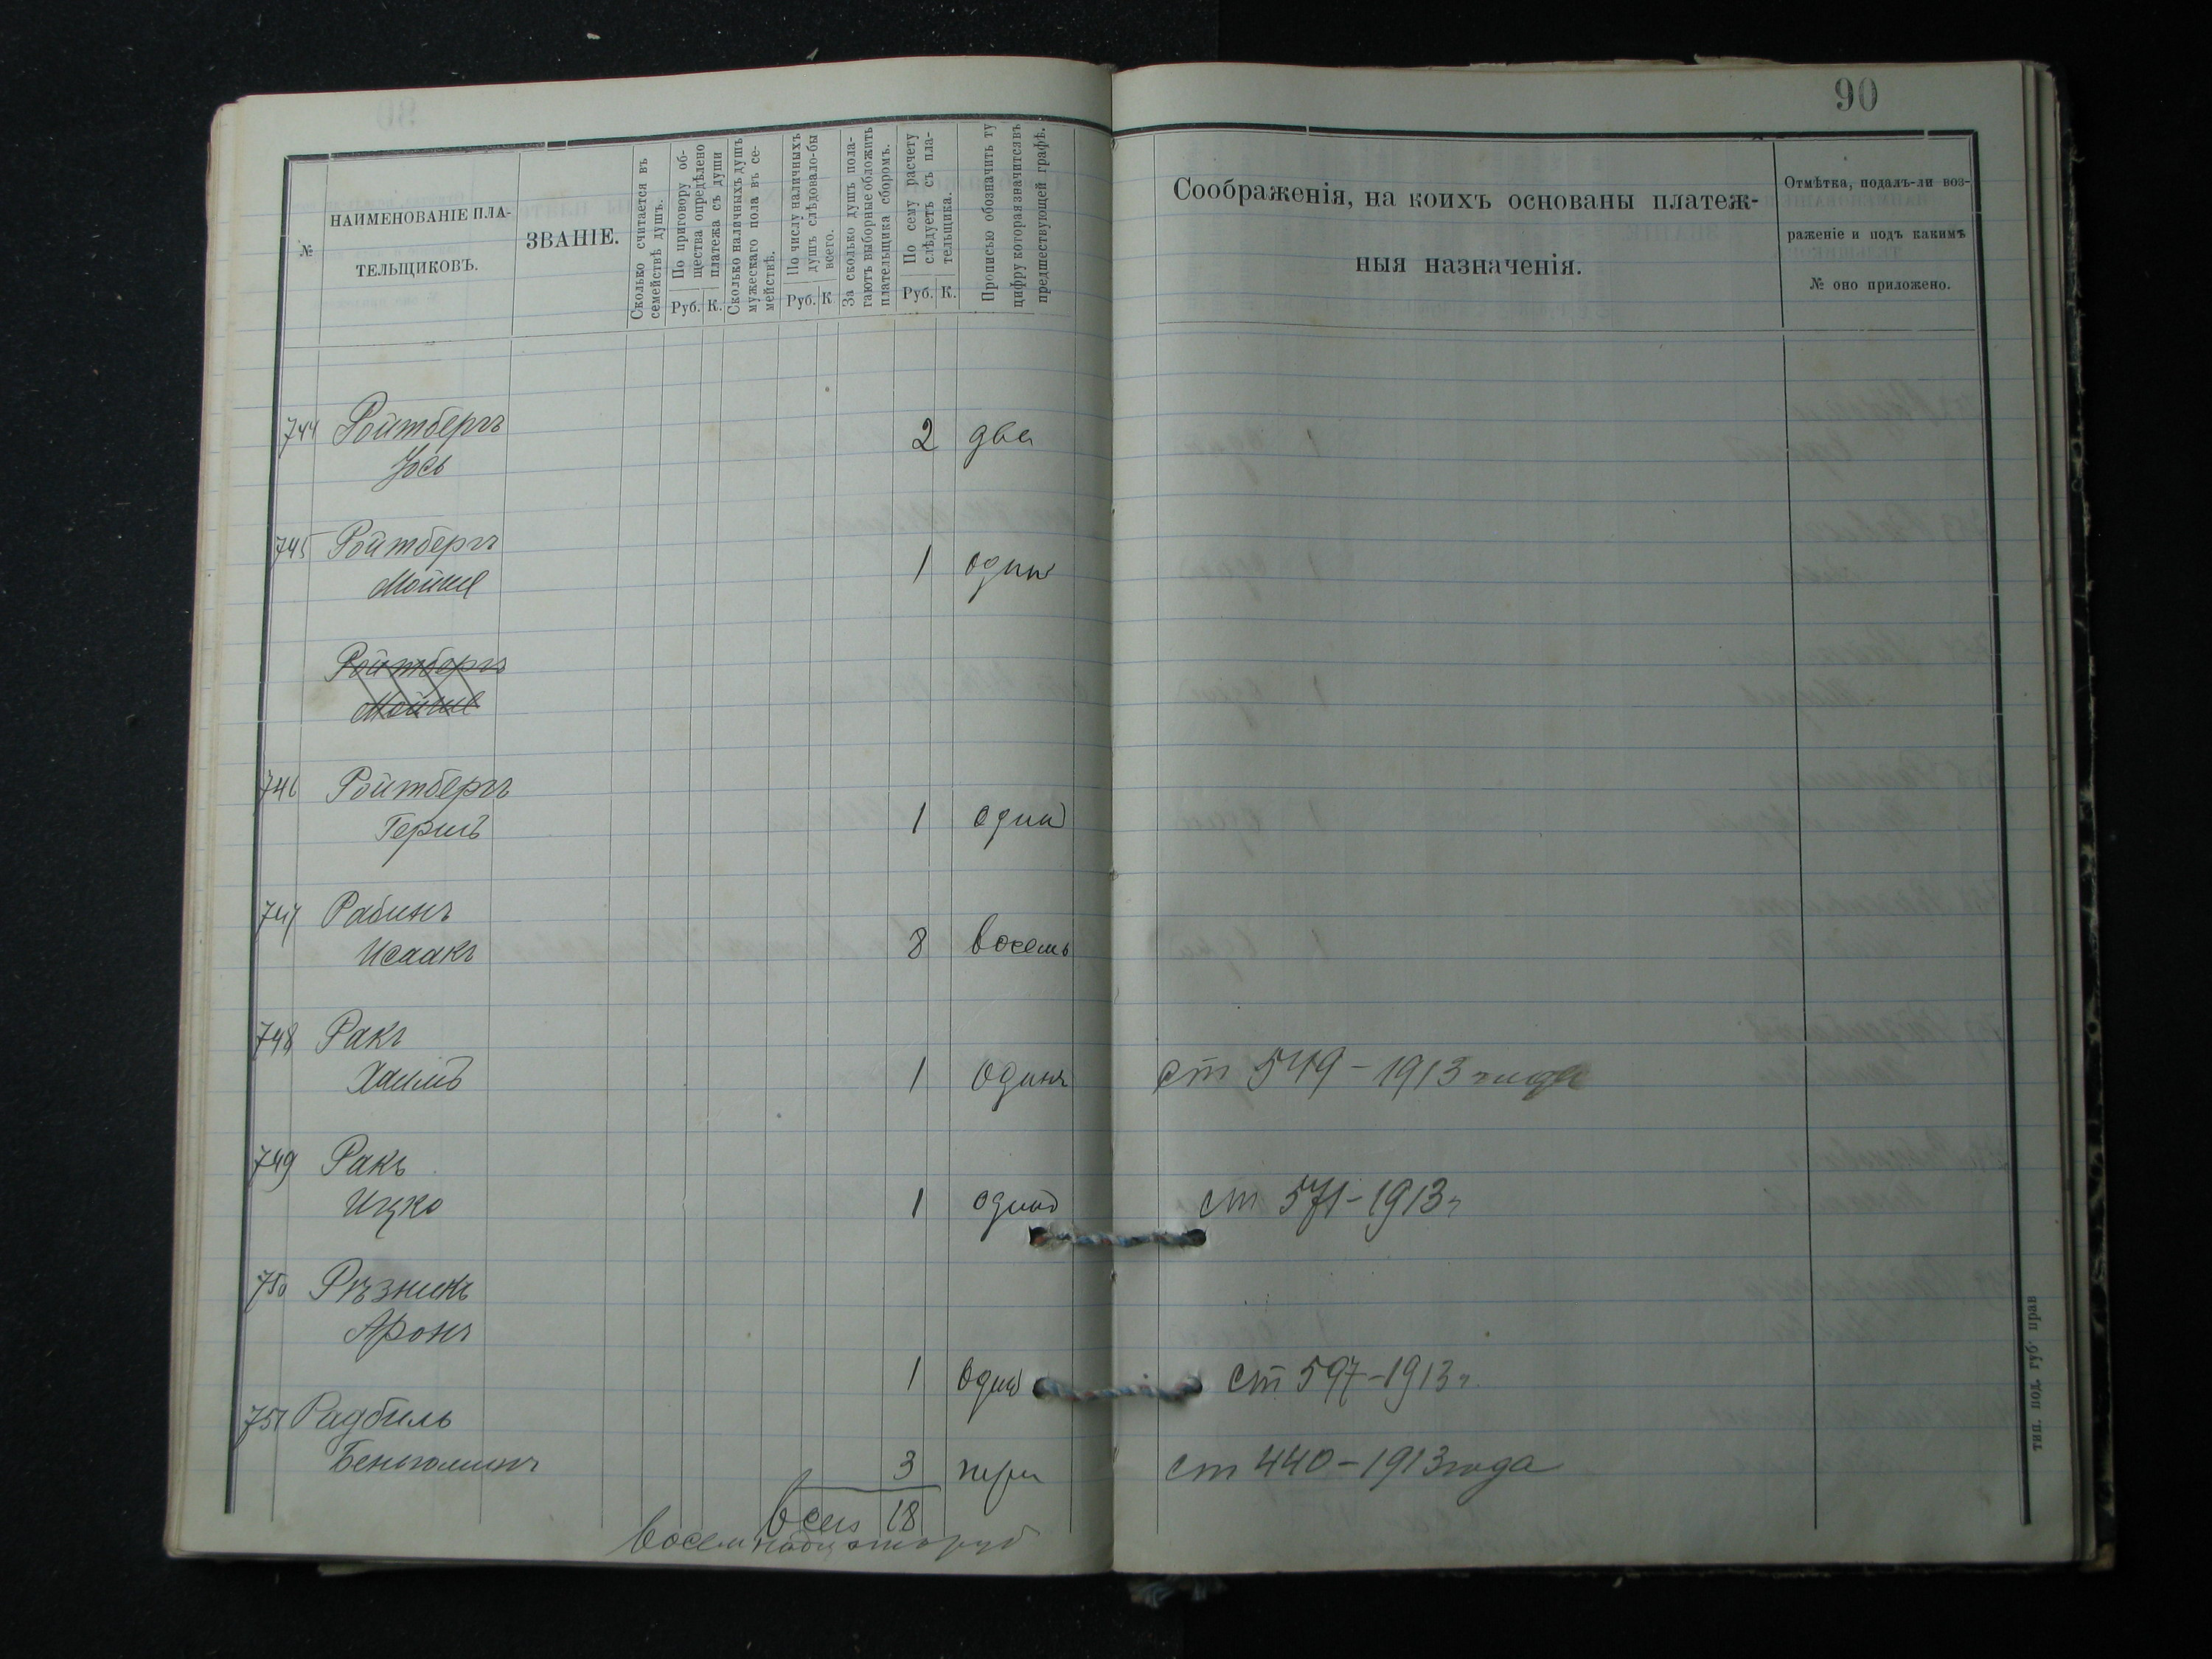 90
№
НАИМЕНОВАНІЕ ПЛА-
ТЕЛЬЩИКОВЪ.
ЗВАНІЕ.
Сколько считается въ
семействѣ душъ.
По приговору об-
щества опредѣлено
платежа съ души
Руб. К.
Сколько наличныхъ душъ
мужескаго пола въ се-
мействѣ.
По числу наличныхъ
душъ слѣдовало-бы
всего.
Руб. К
За сколько душъ пола-
гаютъ выборные обложить
плательщика сборомъ.
По сему расчету
слѣдуетъ съ пла-
тельщика.
Руб. К.
Прописью обозначить ту
цифру котораязначитсявъ
предшествующей графѣ.
Соображенія, на коихъ основаны платеж-
ныя назначенія.
Отмѣтка, подалъ-ли воз-
раженіе и подъ какимъ
№ оно приложено.
744 Ройтбергъ
Іось 2 два
745 Ройтбергъ
Мойше 1 одинъ
Ройтбергъ
Мойше
746 Ройтбергъ
Гершъ 1 одинъ
747 Рабинъ
Исаакъ 8 восемь
748 Ракъ
Хаимъ 1 одинъ ст 549-1913 года
749 Ракъ
Ицко 1 одинъ ст 571-1913 г
750 Рѣзникъ
Аронъ
1 один ст 597-1913 г
751 Радбиль
Беньоминъ 3 три ст 440-1913 года
всего 18
восемнадцать руб
тип. под. губ. прав